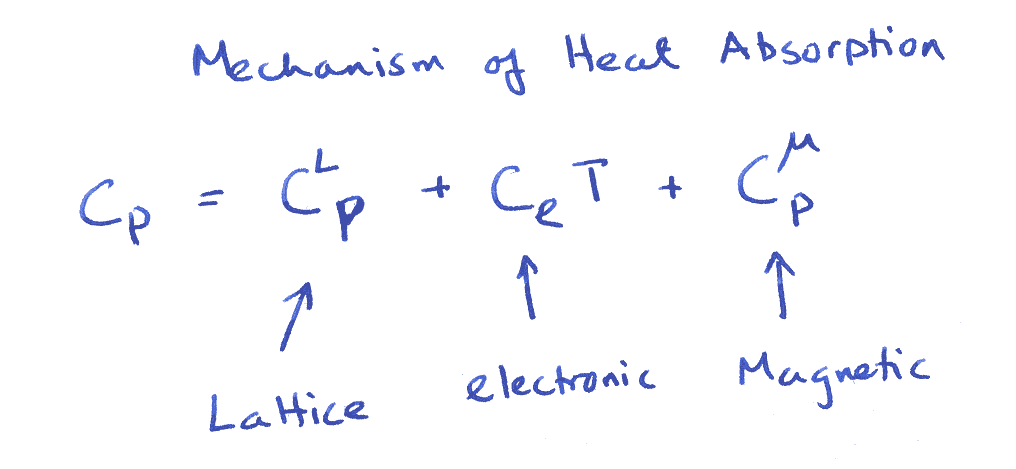 Mechanism of Heat Absorption
Cp = C^L_p + C_e T + C^μ_p
Lattice electronic Magnetic